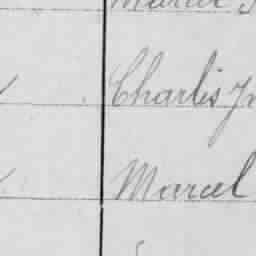 Charlis Jn
Marcel